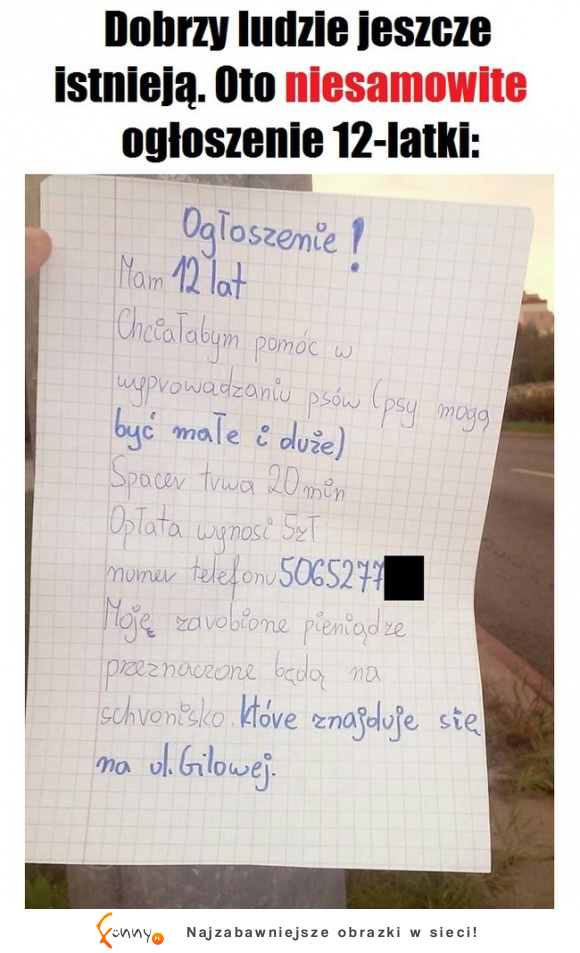 Dobrzy ludzie jeszcze
istnieją. Oto niesamowite
ogłoszenie 12-latki:
Ogłoszenie!
Mam 12 lat
Chciałabym pomóc w
wyprowadzaniu psów (psy mogą
być małe i duże)
Spacer trwa 20 min
Opłata wynosi 5zł
numer telefonu 5065277
Moję zarobione pieniądze
przeznaczone będą na
schronisko które znajduje się
na ul. Gilowej.
funny.pl Najzabawniejsze obrazki w sieci!